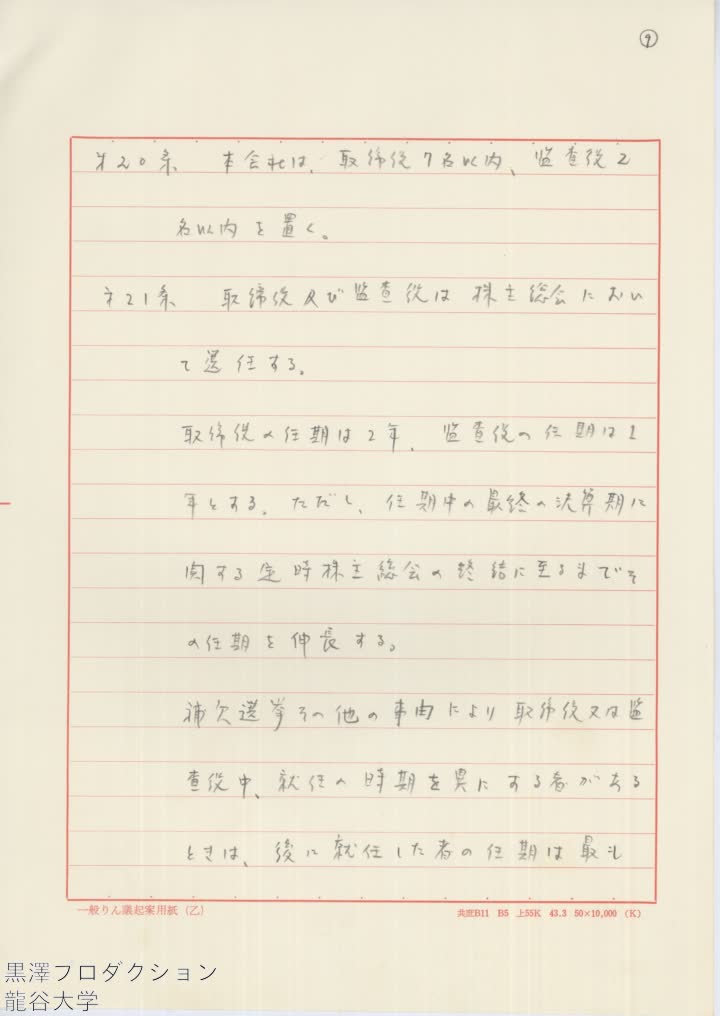 ⑨
第20条　本会社は、取締役7名以内、監査役2
名以内を置く。
第21条　取締役及び監査役は株主総会におい
て選任する。
取締役の任期は2年、監査役の任期は1
年とする。ただし、任期中の最終の決算期に
関する定時株主総会の終結に至るまでそ
の任期を伸長する。
補欠選挙その他の事由により取締役又は監
査役中、就任の時期を異にする者がある
ときは、後に就任した者の任期は最も
一般りん議起案用紙（乙）
共庶B11　B5　上55K　43.3　50×10,000　（K）
黒澤プロダクション
龍谷大学